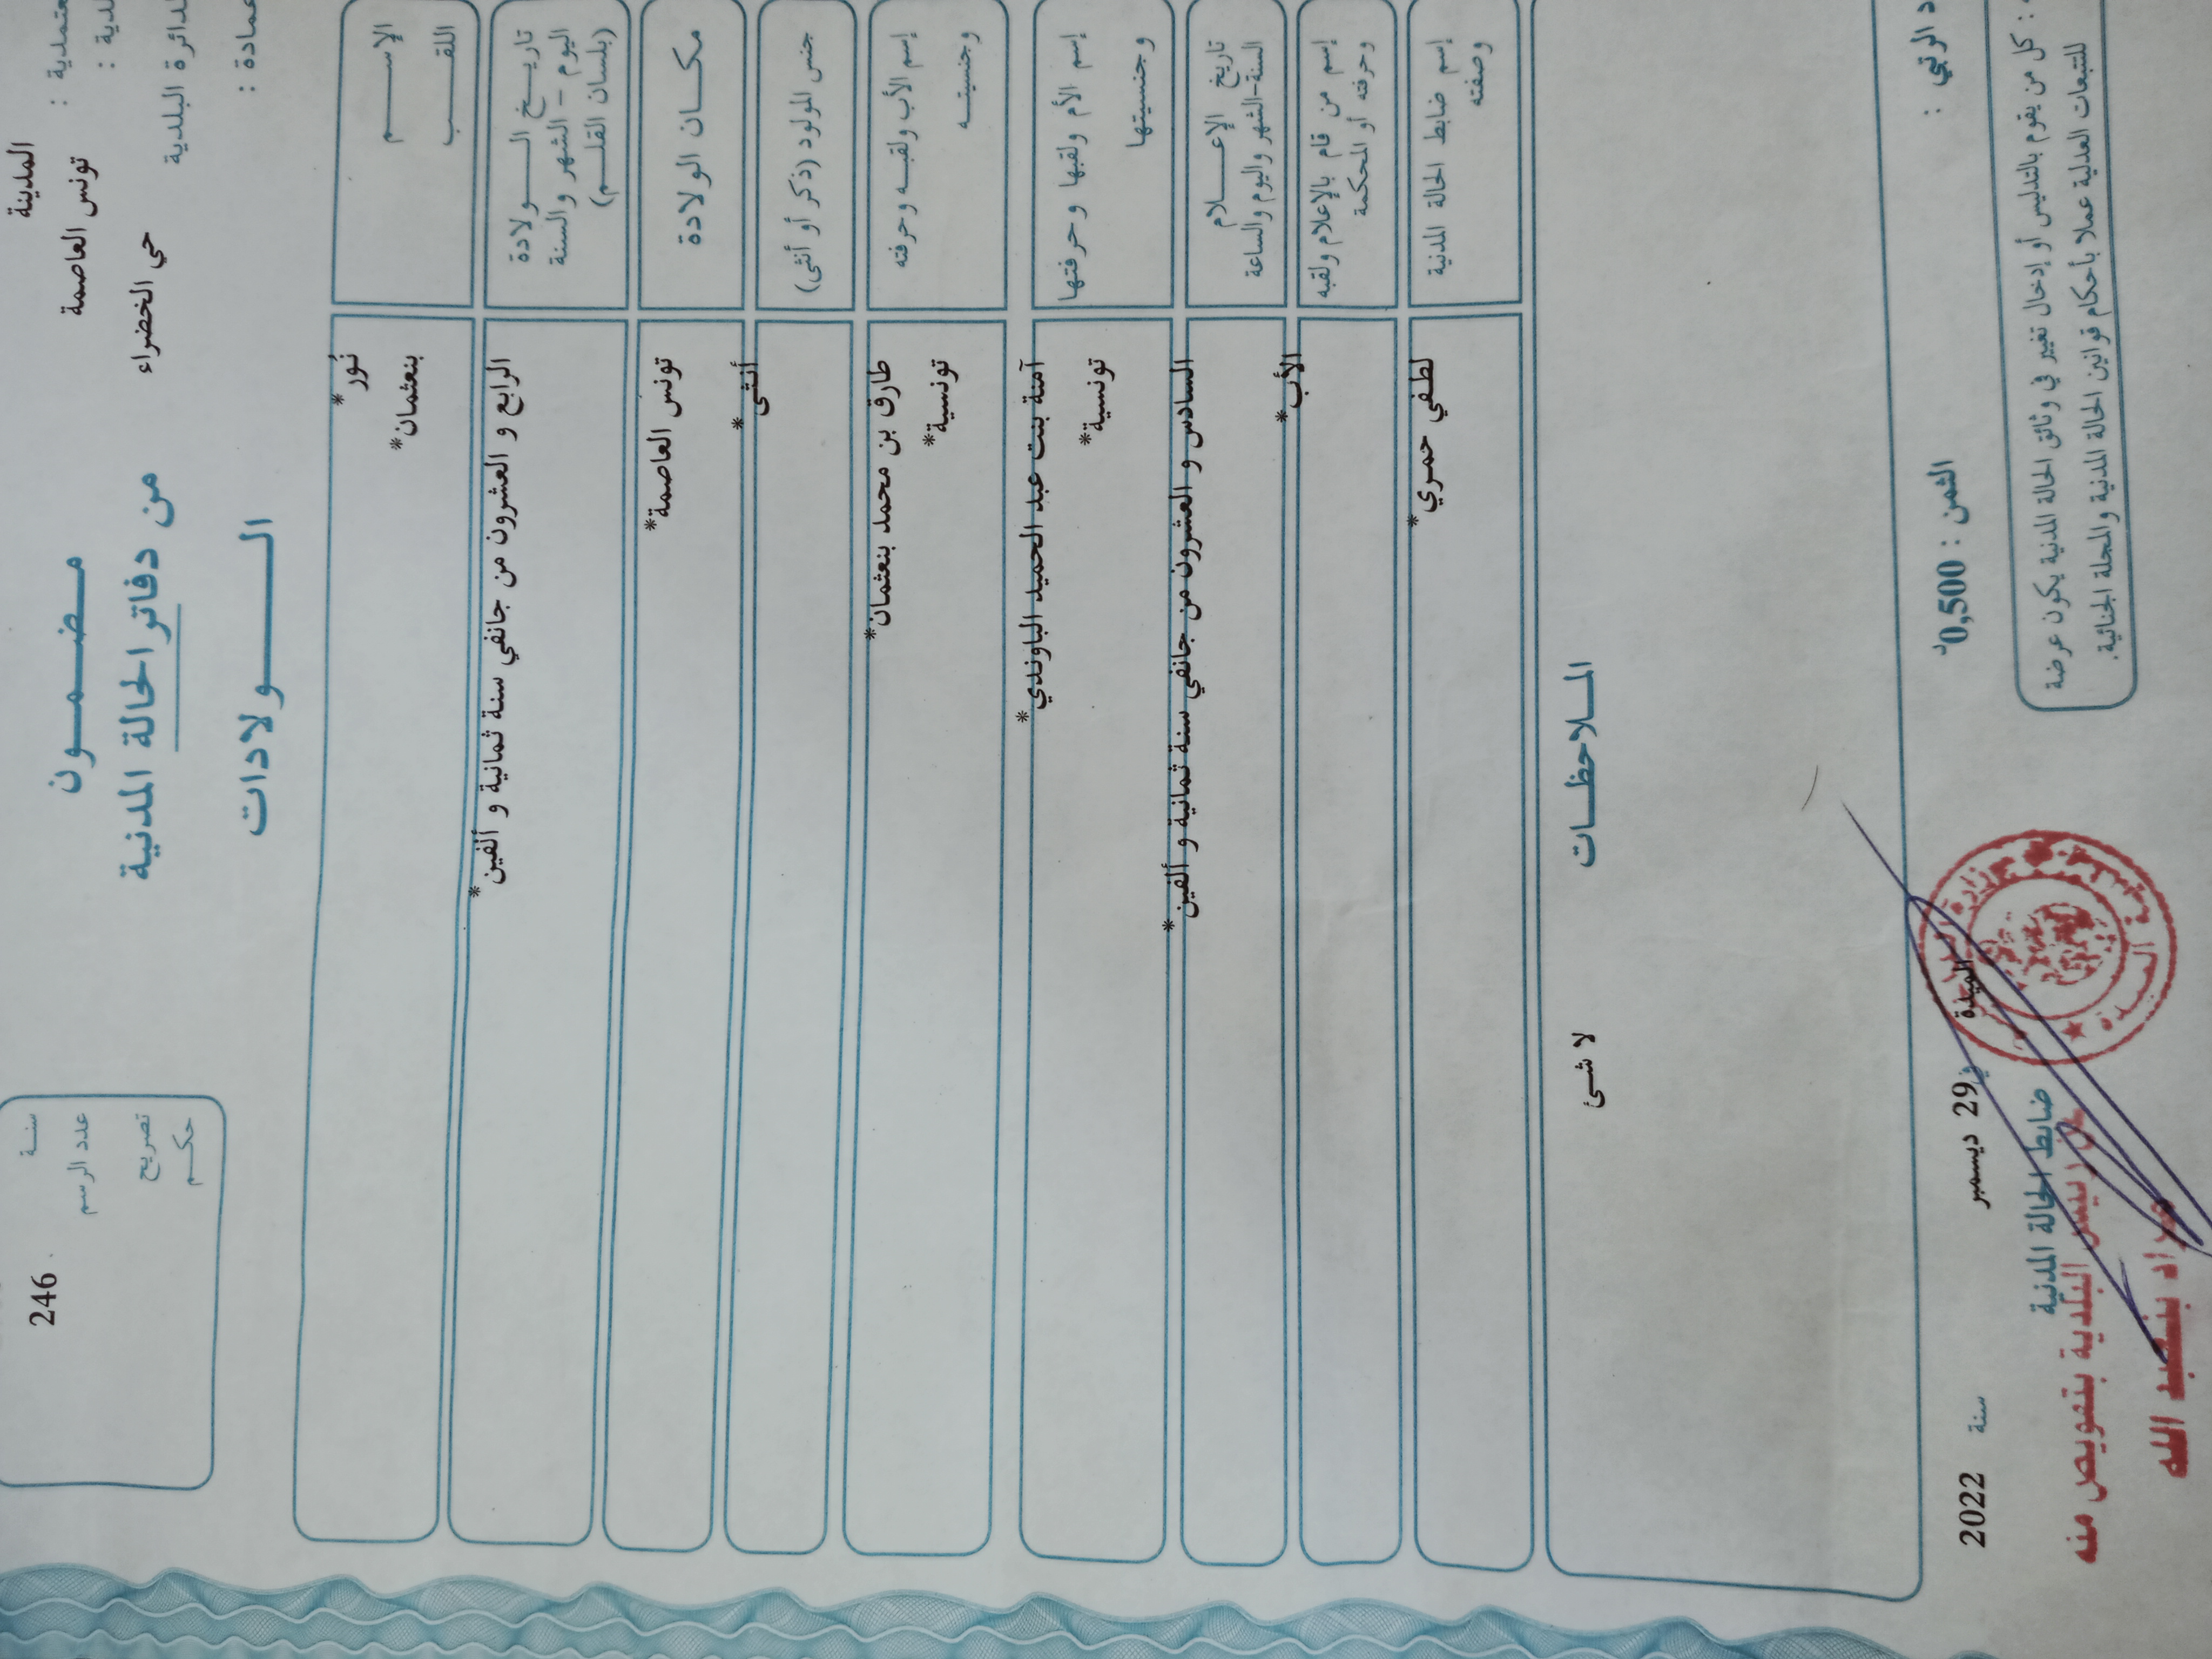 المدينة
تونس العاصمة
حي الخضراء
الدائرة البلدية
مضمون
من دفاتر الحالة المدنية
الولادات
سنة
246
عدد الرسم
تصريح
حكم
الإسم
اللقب
نور*
بنعثمان*
تاريخ الولادة
اليوم - الشهر والسنة
(بلسان القلم)
الرابع و العشرون من جانفي سنة ثمانية و ألفين*
مكان الولادة
تونس العاصمة*
جنس المولود (ذكر أو أنثى)
أنثى*
إسم الأب ولقبه وحرفته
وجنسيته
طارق بن محمد بنعثمان*
تونسية*
إسم الأم ولقبها وحرفتها
وجنسيتها
آمنة بنت عبد الحميد الباوندي*
تونسية*
تاريخ الإعلام
السنة-الشهر واليوم والساعة
السادس و العشرون من جانفي سنة ثمانية و ألفين*
إسم من قام بالإعلام ولقبه
وحرفته أو المحكمة
الأب*
إسم ضابط الحالة المدنية
وصفته
لطفي حمري*
الملاحظات
لا شئ
الثمن : 0,500د
الميدة في 29 ديسمبر سنة 2022
ضابط الحالة المدنية
رئيس البلدية بتفويض منه
مراد بنعبد الله
: كل من يقوم بالتدليس أو إدخال تغيير في وثائق الحالة المدنية يكون عرضة
للتتبعات العدلية عملا بأحكام قوانين الحالة المدنية والمجلة الجنائية.